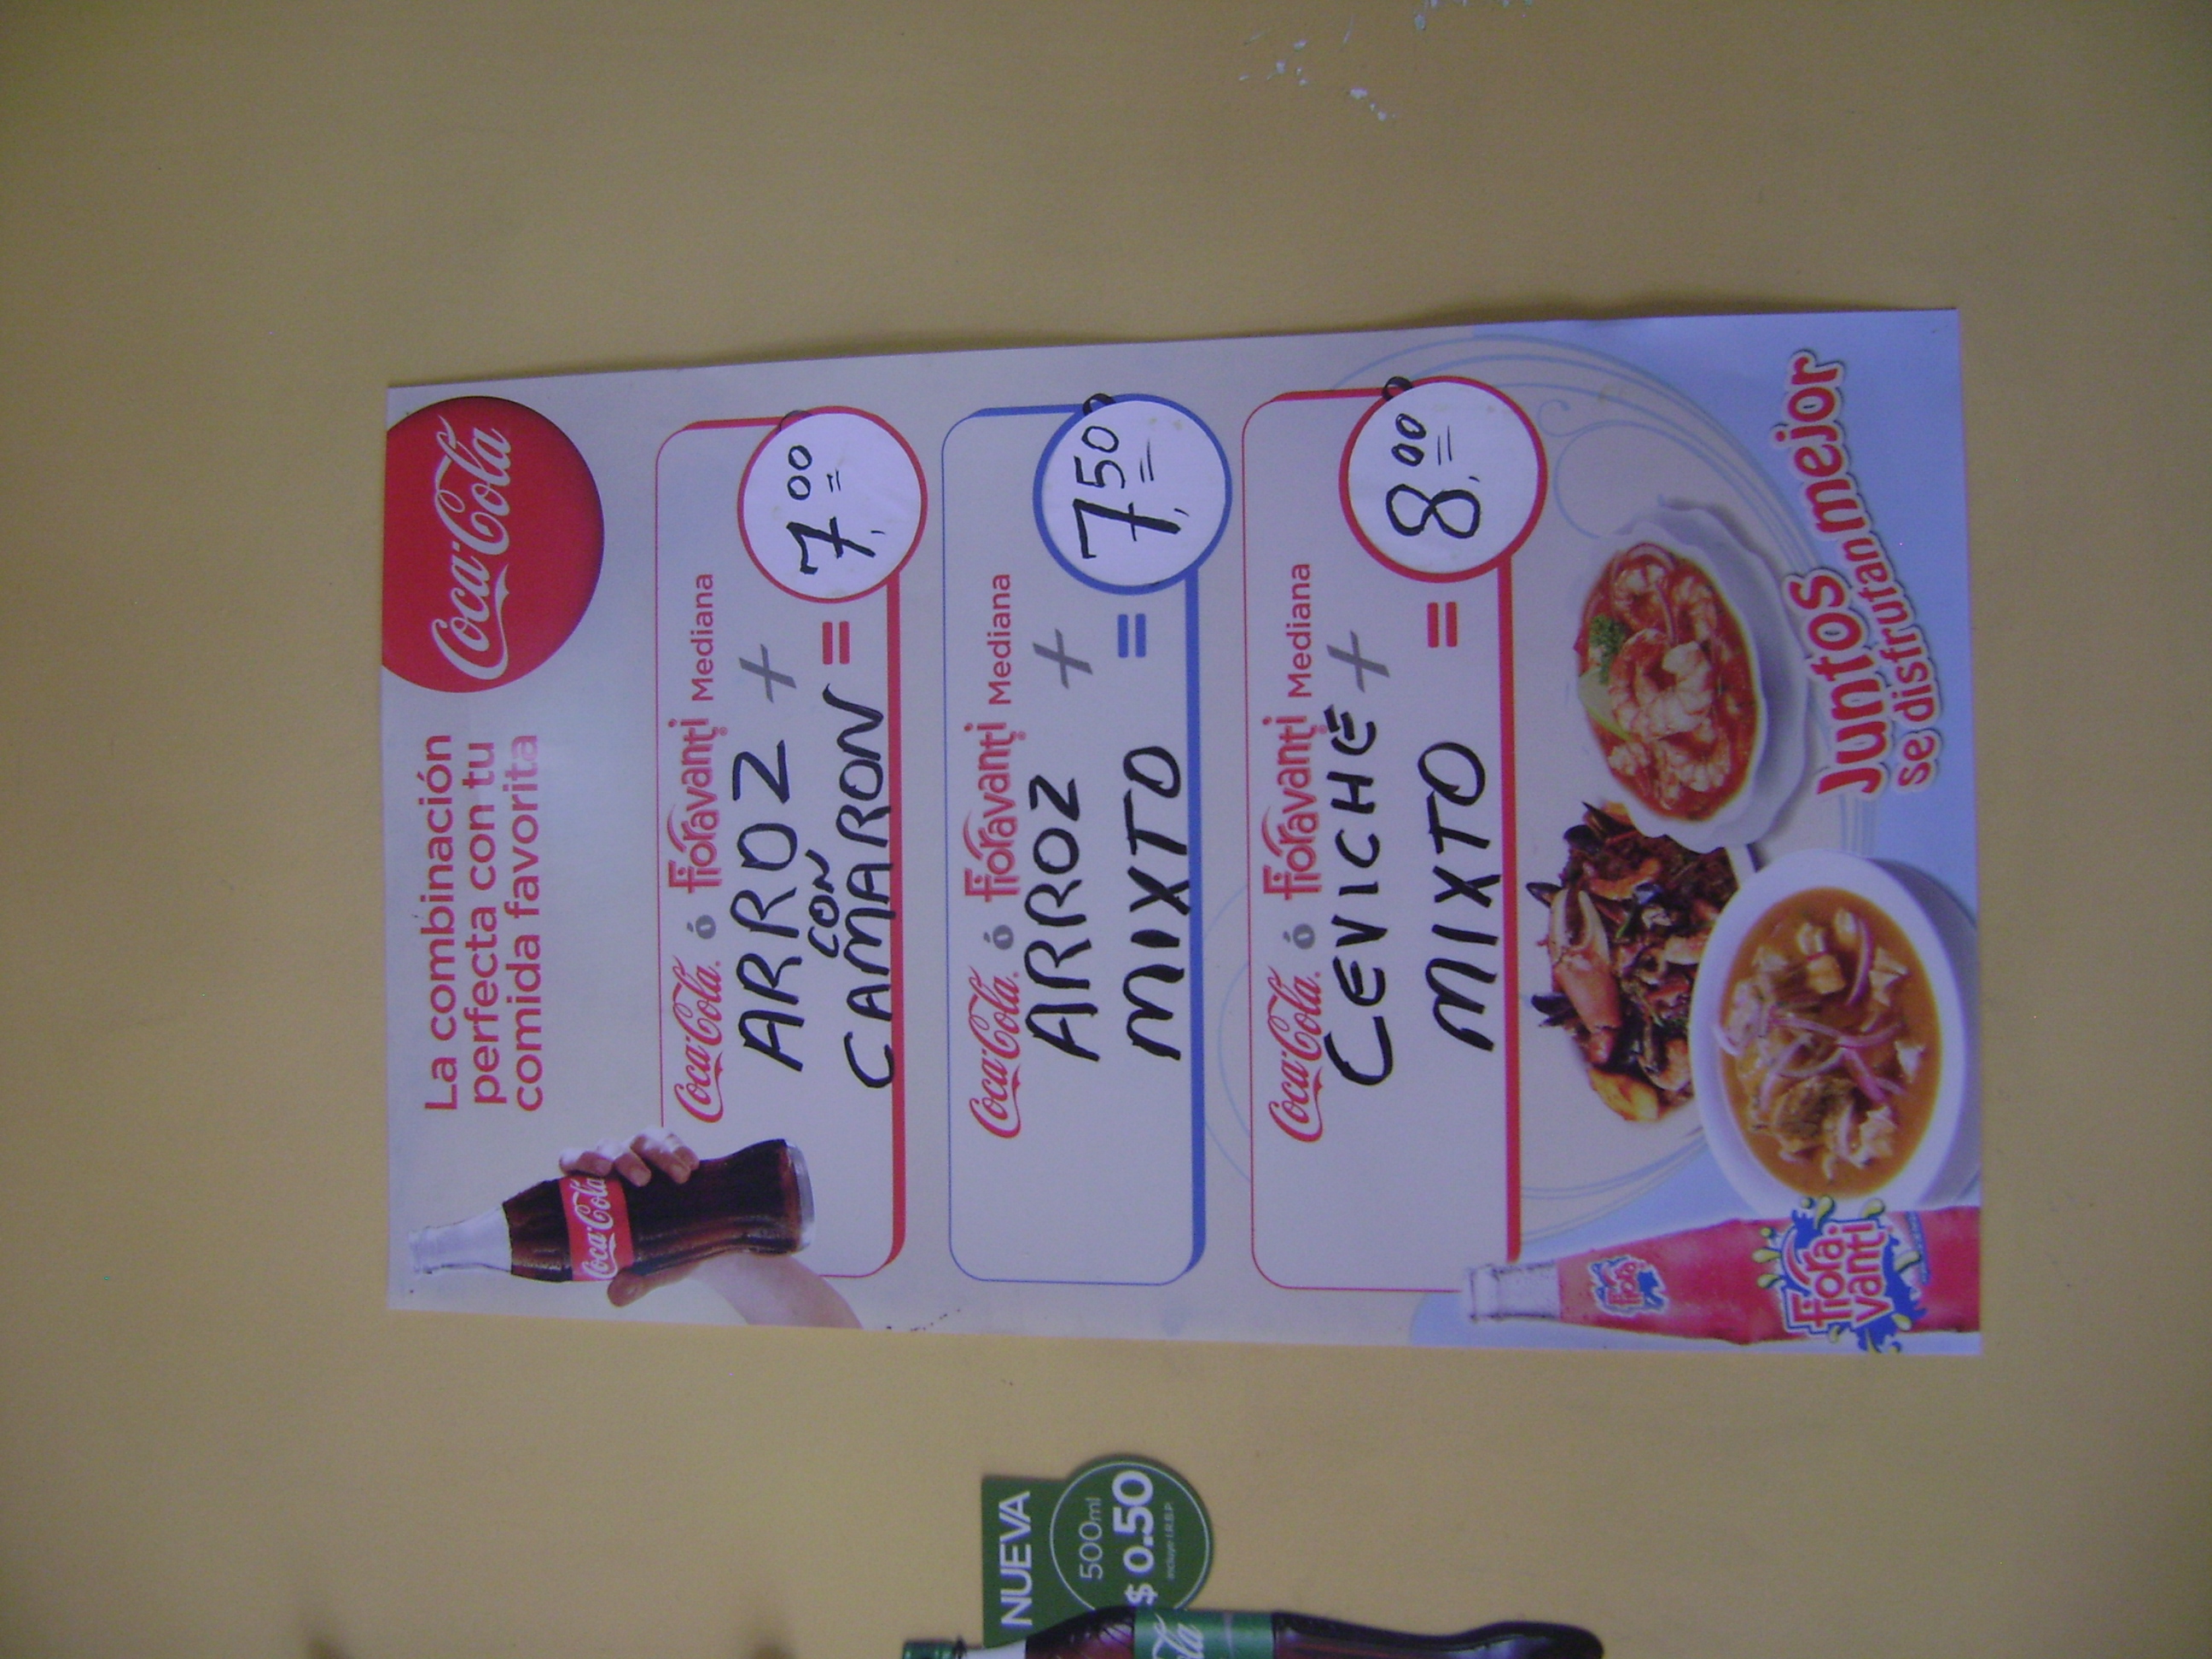 La combinación
perfecta con tu
comida favorita
Coca-Cola
Coca-Cola
Coca-Cola ó Fioravanti Mediana
ARROZ +
CON
CAMARON = 7,00
Coca-Cola ó Fioravanti Mediana
ARROZ +
MIXTO = 7,50
Coca-Cola ó Fioravanti Mediana
CEVICHE +
MIXTO = 8,00
Fiora
Fiora
vanti
Juntos
se disfrutan mejor
NUEVA
500ml
$ 0.50
incluye I.R.B.P.
la